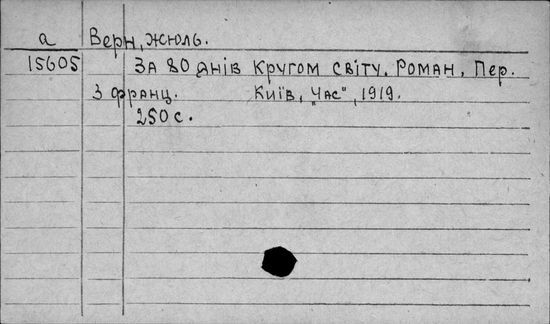 а Верн, Жюль.
15605 За 80 днів кругом світу. Роман. Пер.
з франц. Київ, "Час", 1919.
250 с.